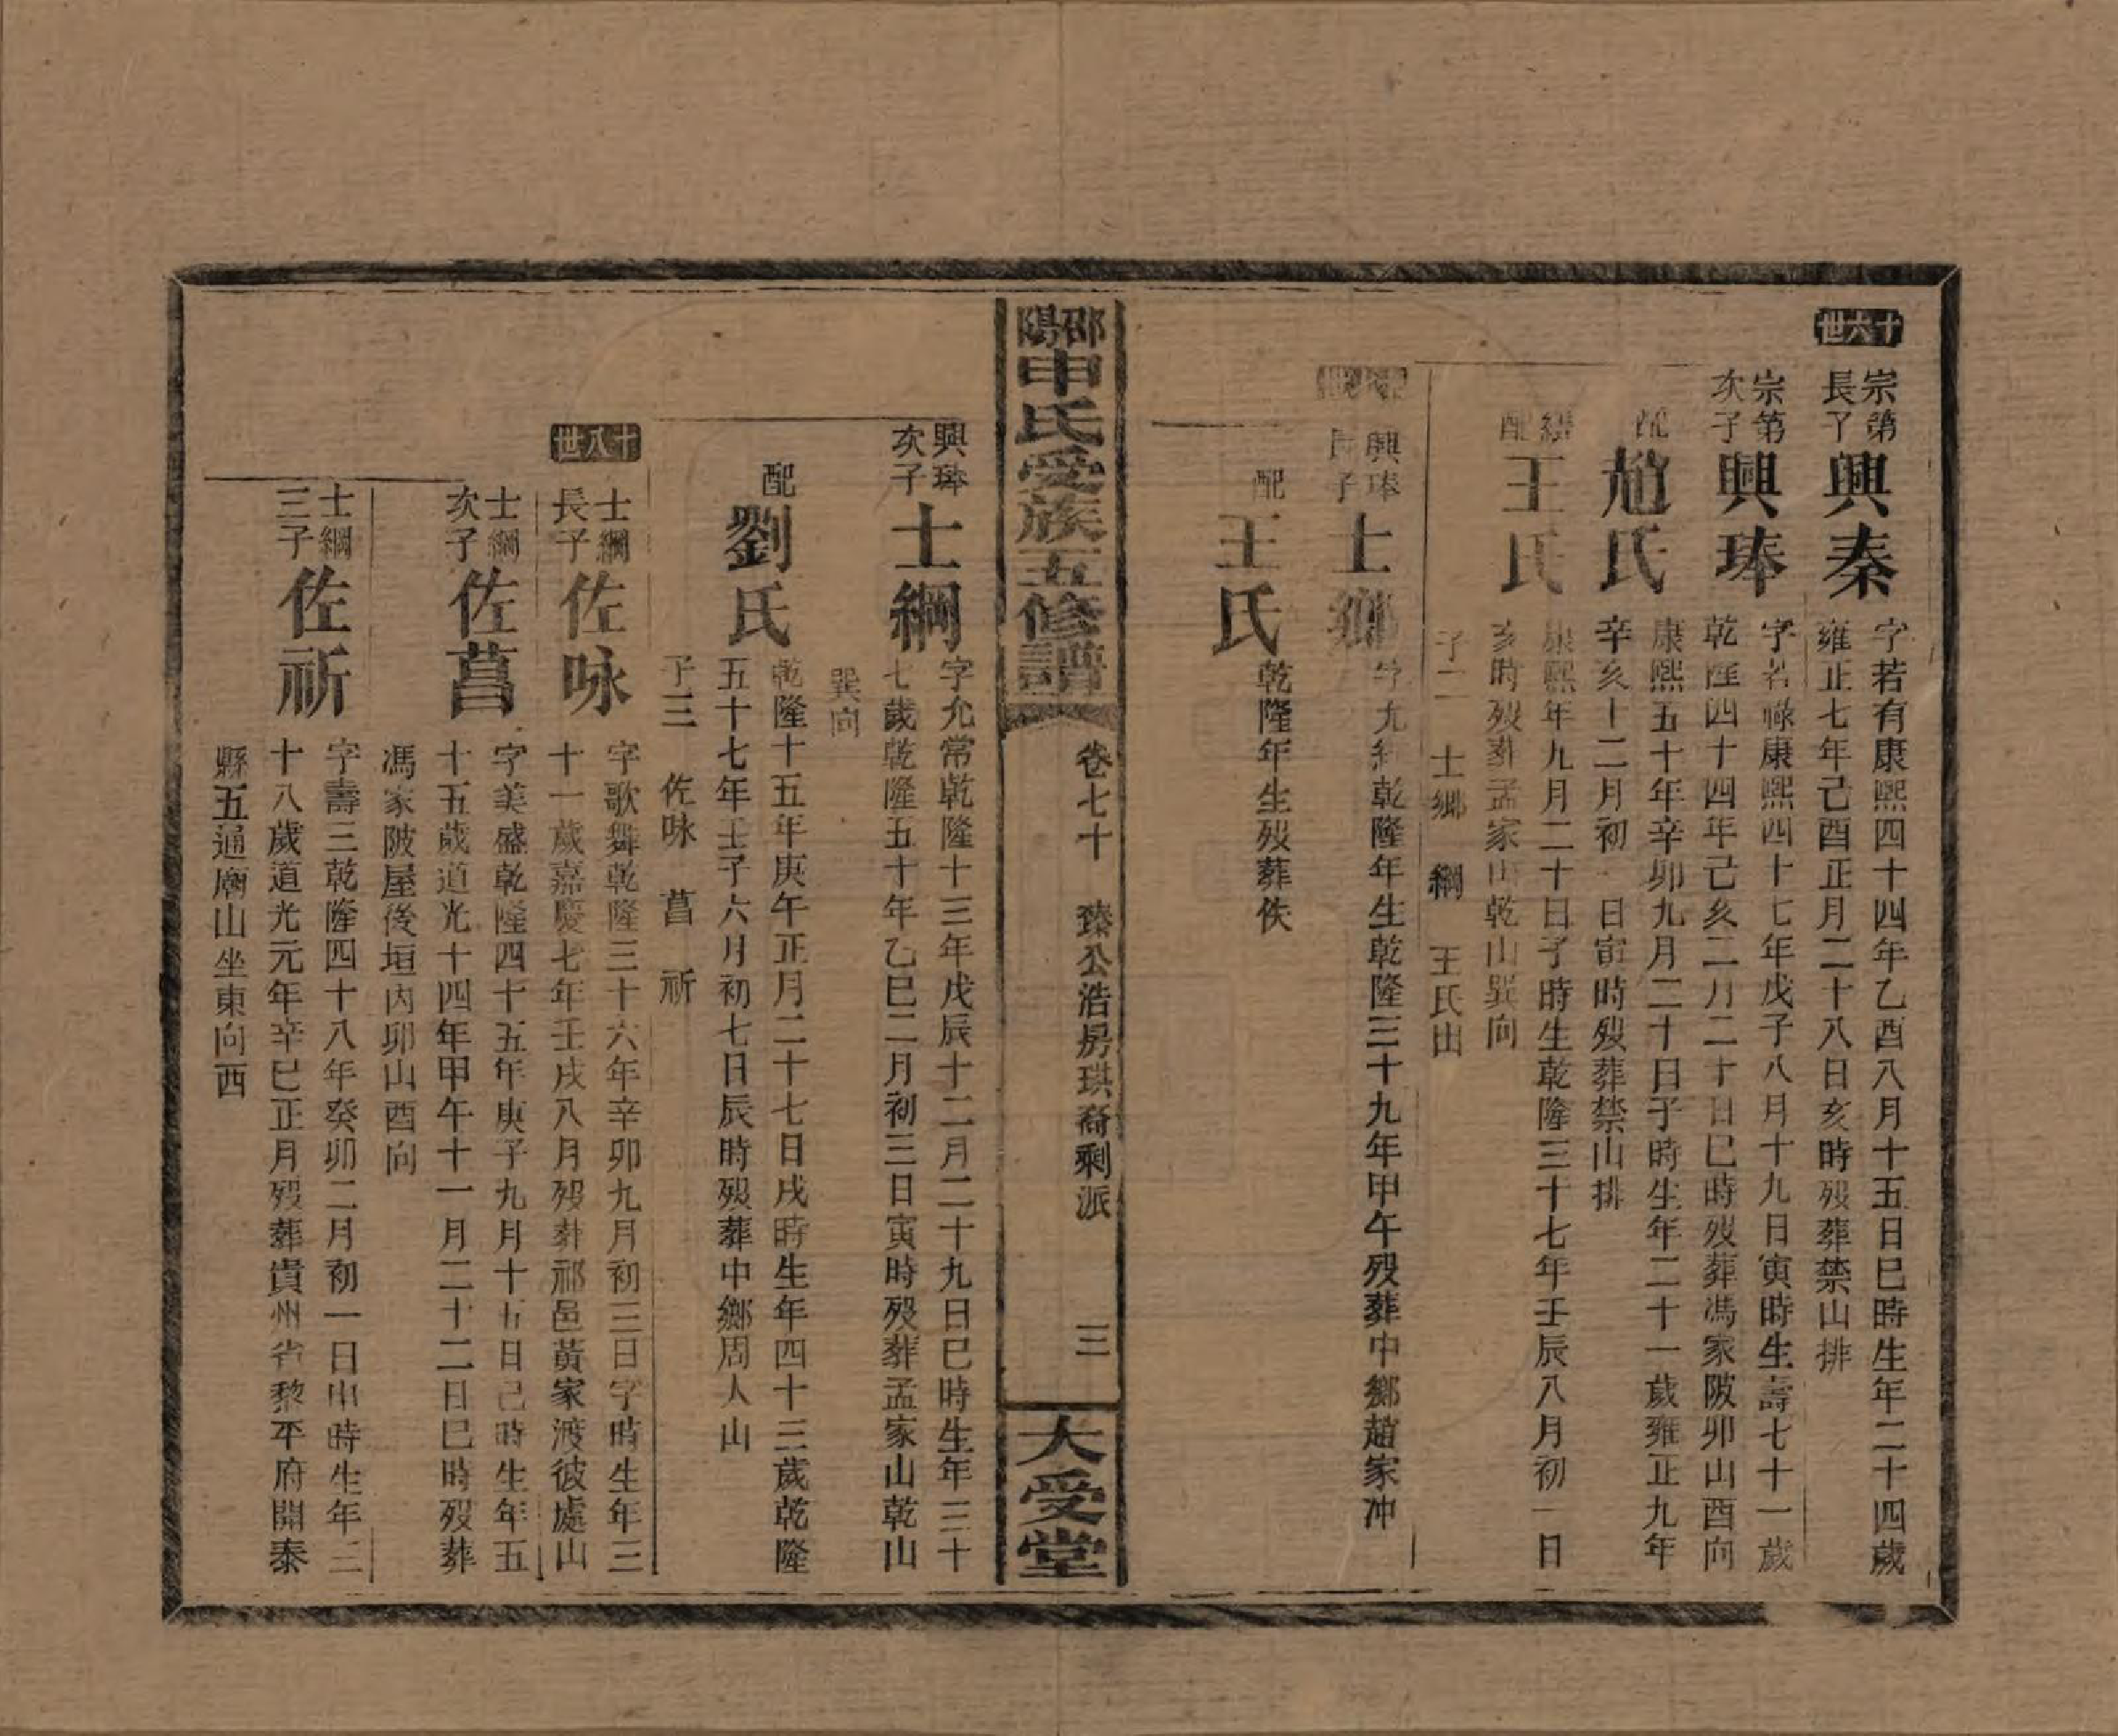 十六世
宗第長子 興秦
字若有康熙四十四年乙酉八月十五日巳時生年二十四歲
雍正七年己酉正月二十八日亥時歿葬禁山排
宗第次子 興琫
字若祿康熙四十七年戊子八月十九日寅時生壽七十一歲
乾隆四十四年己亥二月二十日巳時歿葬馮家陂卯山酉向
配 趙氏
康熙五十年辛卯九月二十日子時生年二十一歲雍正九年
辛亥十二月初一日寅時歿葬禁山排
繼配 王氏
康熙年九月二十日子時生乾隆三十七年壬辰八月初一日
亥時歿葬孟家山乾山巽向
子二 士鄉 綱 王氏出
興琫長子 士鄉
字允 乾隆年生乾隆三十九年甲午歿葬中鄉趙家冲
配 王氏
乾隆年生歿葬佚
邵陽申氏受族五修譜 卷七十 臻公浩房琪裔剩派 三 大受堂
興琫次子 士綱
字允常乾隆十三年戊辰十二月二十九日巳時生年三十
七歲乾隆五十年乙巳二月初三日寅時歿葬孟家山乾山
巽向
配 劉氏
乾隆十五年庚午正月二十七日戌時生年四十三歲乾隆
五十七年壬子六月初七日辰時歿葬中鄉周人山
子三 佐咏 菖 祈
十八世
士綱長子 佐咏
字歌舞乾隆三十六年辛卯九月初三日字時生年三
十一歲嘉慶七年壬戌八月歿葬祁邑黃家渡彼處山
士綱次子 佐菖
字美盛乾隆四十五年庚子九月十五日己時生年五
十五歲道光十四年甲午十一月二十二日巳時歿葬
馮家陂屋後垣內卯山酉向
士綱三子 佐祈
字壽三乾隆四十八年癸卯二月初一日申時生年三
十八歲道光元年辛巳正月歿葬貴州省黎平府開泰
縣五通廟山坐東向西